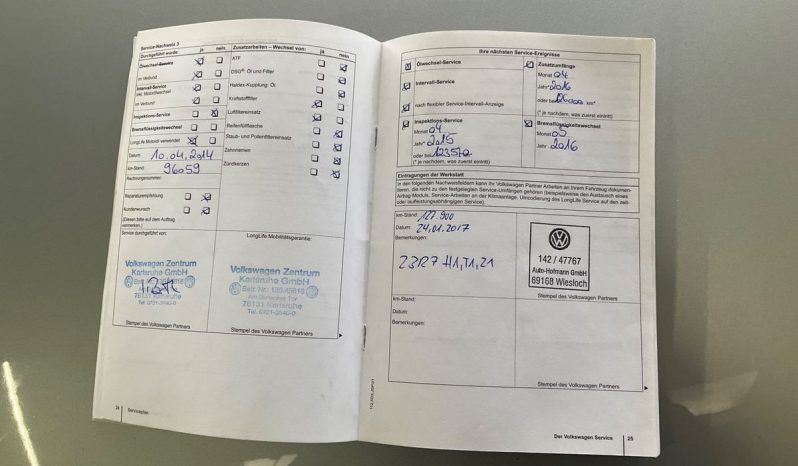 Service-Nachweis 3
Durchgeführt wurde: ja nein
Ölwechsel-Service
im Verbund
Intervall-Service
inkl. Motorölwechsel
im Verbund
Inspektions-Service
Bremsflüssigkeitswechsel
LongLife Motoröl verwendet
Datum: 10.04.2014
km-Stand: 96059
Rechnungsnummer:
Reparaturempfehlung
Kundenwunsch
(Diesen bitte auf dem Auftrag
vermerken.)
Service durchgeführt von:
Volkswagen Zentrum
Karlsruhe GmbH
76131 Karlsruhe
Tel. 0721-3540-0
Stempel des Volkswagen Partners
Zusatzarbeiten – Wechsel von: ja nein
ATF
DSG® Öl und Filter
Haldex-Kupplung: Öl
Kraftstofffilter
Luftfiltereinsatz
Reifenfüllflasche
Staub- und Pollenfiltereinsatz
Zahnriemen
Zündkerzen
LongLife Mobilitätsgarantie:
Volkswagen Zentrum
Karlsruhe GmbH
Am Durlacher Tor
76131 Karlsruhe
Tel. 0721-3540-0
Stempel des Volkswagen Partners
24 Serviceplan
Ihre nächsten Service-Ereignisse
Ölwechsel-Service
Intervall-Service
nach flexibler Service-Intervall-Anzeige
Inspektions-Service
Monat 04
Jahr* 2015
oder bei
(* je nachdem, was zuerst eintritt)
Zusatzumfänge
Monat 04
Jahr* 2016
oder bei km*
(* je nachdem, was zuerst eintritt)
Bremsflüssigkeitswechsel
Monat 05
Jahr 2016
Eintragungen der Werkstatt
In den folgenden Nachweisfeldern kann Ihr Volkswagen Partner Arbeiten an Ihrem Fahrzeug dokumen-
tieren, die nicht zu den festgelegten Service-Umfängen gehören (beispielsweise den Austausch eines
Airbag-Moduls, Service-Arbeiten an der Klimaanlage, Umcodierung des LongLife Service auf den zeit-
oder laufleistungsabhängigen Service).
km-Stand: 127.900
Datum: 24.01.2017
Bemerkungen:
23R7 H1,T1,21
142 / 47767
Auto-Hofmann GmbH
69168 Wiesloch
Stempel des Volkswagen Partners
km-Stand:
Datum:
Bemerkungen:
Stempel des Volkswagen Partners
Der Volkswagen Service 25